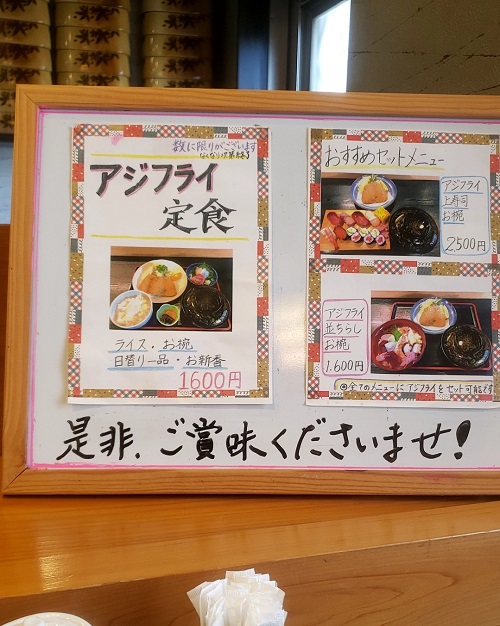 数に限りがございます
なくなり次第終了
アジフライ
定食
ライス・お椀
日替り一品・お新香
1600円
おすすめセットメニュー
アジフライ
上寿司
お椀
2500円
アジフライ
並ちらし
お椀
1.600円
◎全てのメニューにアジフライをセット可能です
是非、ご賞味くださいませ!